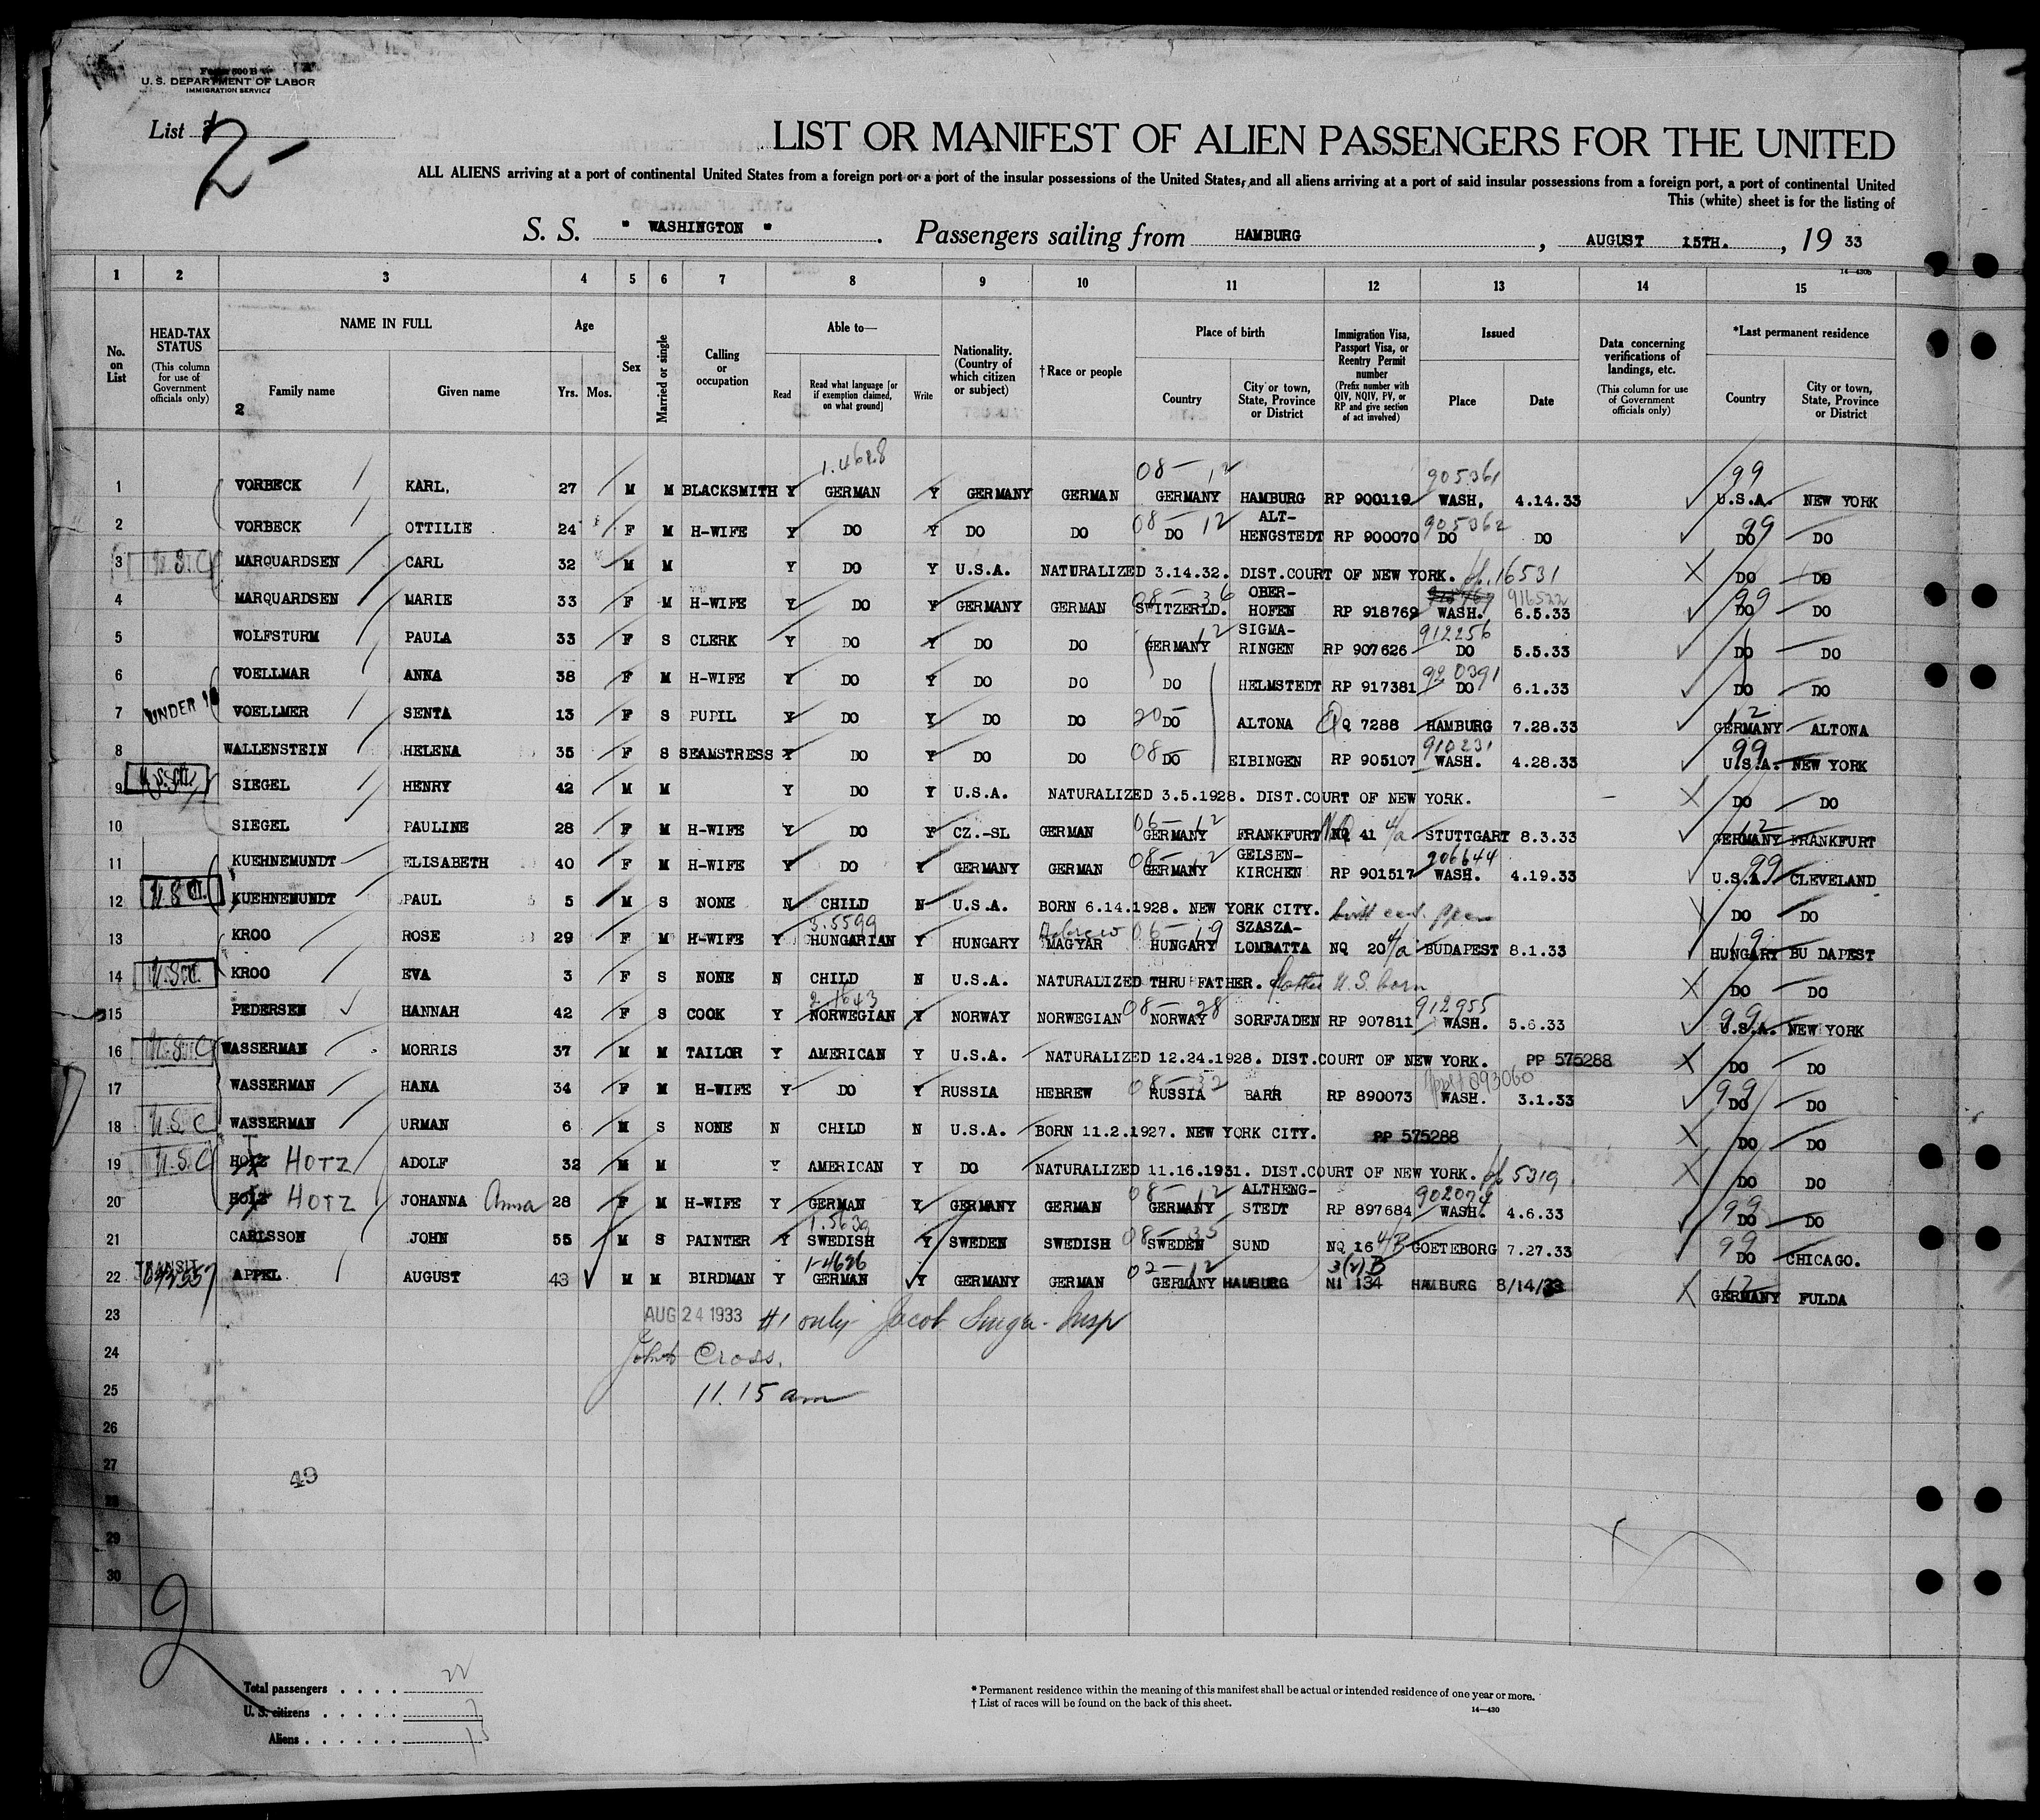 Form 500 B
U. S. DEPARTMENT OF LABOR
IMMIGRATION SERVICE
List
2-
LIST OR MANIFEST OF ALIEN PASSENGERS FOR THE UNITED
ALL ALIENS arriving at a port of continental United States from a foreign port or a port of the insular possessions of the United States, and all aliens arriving at a port of said insular possessions from a foreign port, a port of continental United
This (white) sheet is for the listing of
S. S. " WASHINGTON " . Passengers sailing from HAMBURG , AUGUST 15TH. , 19 33
14—430b
1 2 3 4 5 6 7 8 9 10 11 12 13 14 15
No. on List
HEAD-TAX STATUS (This column for use of Government officials only)
NAME IN FULL
Family name
Given name
2
Age
Yrs. Mos.
Sex
Married or single
Calling or occupation
Able to—
Read
Read what language [or if exemption claimed, on what ground]
Write
Nationality. (Country of which citizen or subject)
†Race or people
Place of birth
Country
City or town, State, Province or District
Immigration Visa, Passport Visa, or Reentry Permit number (Prefix number with QIV, NQIV, PV, or RP and give section of act involved)
Issued
Place
Date
Data concerning verifications of landings, etc. (This column for use of Government officials only)
*Last permanent residence
Country
City or town, State, Province or District
1.4628 08-12 905361 99
1 VORBECK KARL, 27 M M BLACKSMITH Y GERMAN Y GERMANY GERMAN GERMANY HAMBURG RP 900119 WASH, 4.14.33 U.S.A. NEW YORK
2 VORBECK OTTILIE 24 F M H-WIFE Y DO Y DO DO 08-12 DO ALT-HENGSTEDT RP 900070 905362 DO DO 99 DO DO
3 U.S.C. MARQUARDSEN CARL 32 M M Y DO Y U.S.A. NATURALIZED 3.14.32. DIST.COURT OF NEW YORK. 16531 DO DO
4 MARQUARDSEN MARIE 33 F M H-WIFE Y DO Y GERMANY GERMAN 08-36 SWITZERLD. OBER-HOFEN RP 918769 916522 WASH. 6.5.33 99 DO DO
5 WOLFSTURM PAULA 33 F S CLERK Y DO Y DO DO 12 GERMANY SIGMA-RINGEN RP 907626 912256 DO 5.5.33 DO DO
6 VOELLMAR ANNA 38 F M H-WIFE Y DO Y DO DO DO HELMSTEDT RP 917381 920391 DO 6.1.33 DO DO
7 UNDER 16 VOELLMER SENTA 13 F S PUPIL Y DO Y DO DO 20- DO ALTONA Q 7288 HAMBURG 7.28.33 12 GERMANY ALTONA
8 WALLENSTEIN HELENA 35 F S SEAMSTRESS Y DO Y DO DO 08 DO EIBINGEN RP 905107 910231 WASH. 4.28.33 99 U.S.A. NEW YORK
9 SIEGEL HENRY 42 M M Y DO Y U.S.A. NATURALIZED 3.5.1928. DIST.COURT OF NEW YORK. DO DO
10 SIEGEL PAULINE 28 F M H-WIFE Y DO Y CZ.-SL GERMAN 06-12 GERMANY FRANKFURT NQ 41 4/a STUTTGART 8.3.33 12 GERMANY FRANKFURT
11 KUEHNEMUNDT ELISABETH 40 F M H-WIFE Y DO Y GERMANY GERMAN 08-12 GERMANY GELSEN-KIRCHEN RP 901517 906644 WASH. 4.19.33 99 U.S.A. CLEVELAND
12 KUEHNEMUNDT PAUL 5 M S NONE N CHILD N U.S.A. BORN 6.14.1928. NEW YORK CITY. DO DO
13 KROO ROSE 29 F M H-WIFE Y 3.5599 HUNGARIAN Y HUNGARY Hebrew MAGYAR 06-19 HUNGARY SZASZA-LOMBATTA NQ 20 4/a BUDAPEST 8.1.33 19 HUNGARY BU DAPEST
14 KROO EVA 3 F S NONE N CHILD N U.S.A. NATURALIZED THRU FATHER. father U.S. born DO DO
15 PEDERSEN HANNAH 42 F S COOK Y 2.1643 NORWEGIAN Y NORWAY NORWEGIAN 08-28 NORWAY SORFJADEN RP 907811 912955 WASH. 5.6.33 99 U.S.A. NEW YORK
16 U.S.C WASSERMAN MORRIS 37 M M TAILOR Y AMERICAN Y U.S.A. NATURALIZED 12.24.1928. DIST.COURT OF NEW YORK. PP 575288 DO DO
17 WASSERMAN HANA 34 F M H-WIFE Y DO Y RUSSIA HEBREW 08-32 RUSSIA BARR RP 890073 893060 WASH. 3.1.33 99 DO DO
18 U.S.C WASSERMAN URMAN 6 M S NONE N CHILD N U.S.A. BORN 11.2.1927. NEW YORK CITY. PP 575288 DO DO
19 U.S.C HOTZ ADOLF 32 M M Y AMERICAN Y DO NATURALIZED 11.16.1931. DIST.COURT OF NEW YORK. 5319 DO DO
20 HOTZ JOHANNA Anna 28 F M H-WIFE Y GERMAN Y GERMANY GERMAN 08-12 GERMANY ALTHENG-STEDT RP 897684 902074 WASH. 4.6.33 99 DO DO
21 CARLSSON JOHN 55 M S PAINTER Y 1.5639 SWEDISH Y SWEDEN SWEDISH 08-35 SWEDEN SUND NQ 16 4/B GOETEBORG 7.27.33 99 DO CHICAGO.
22 TRANSIT APPEL AUGUST 43 M M BIRDMAN Y 1-4626 GERMAN Y GERMANY GERMAN 02-12 GERMANY HAMBURG 3(2)B NI 134 HAMBURG 8/14/33 12 GERMANY FULDA
23 AUG 24 1933 #1 only Jacob Singer - Insp
24 Cross.
25 11.15 am
26
27
28
29
30
49
2
Total passengers . . . . 22
U. S. citizens . . . . . 7
Aliens . . . . . . 15
* Permanent residence within the meaning of this manifest shall be actual or intended residence of one year or more.
† List of races will be found on the back of this sheet.
14—430